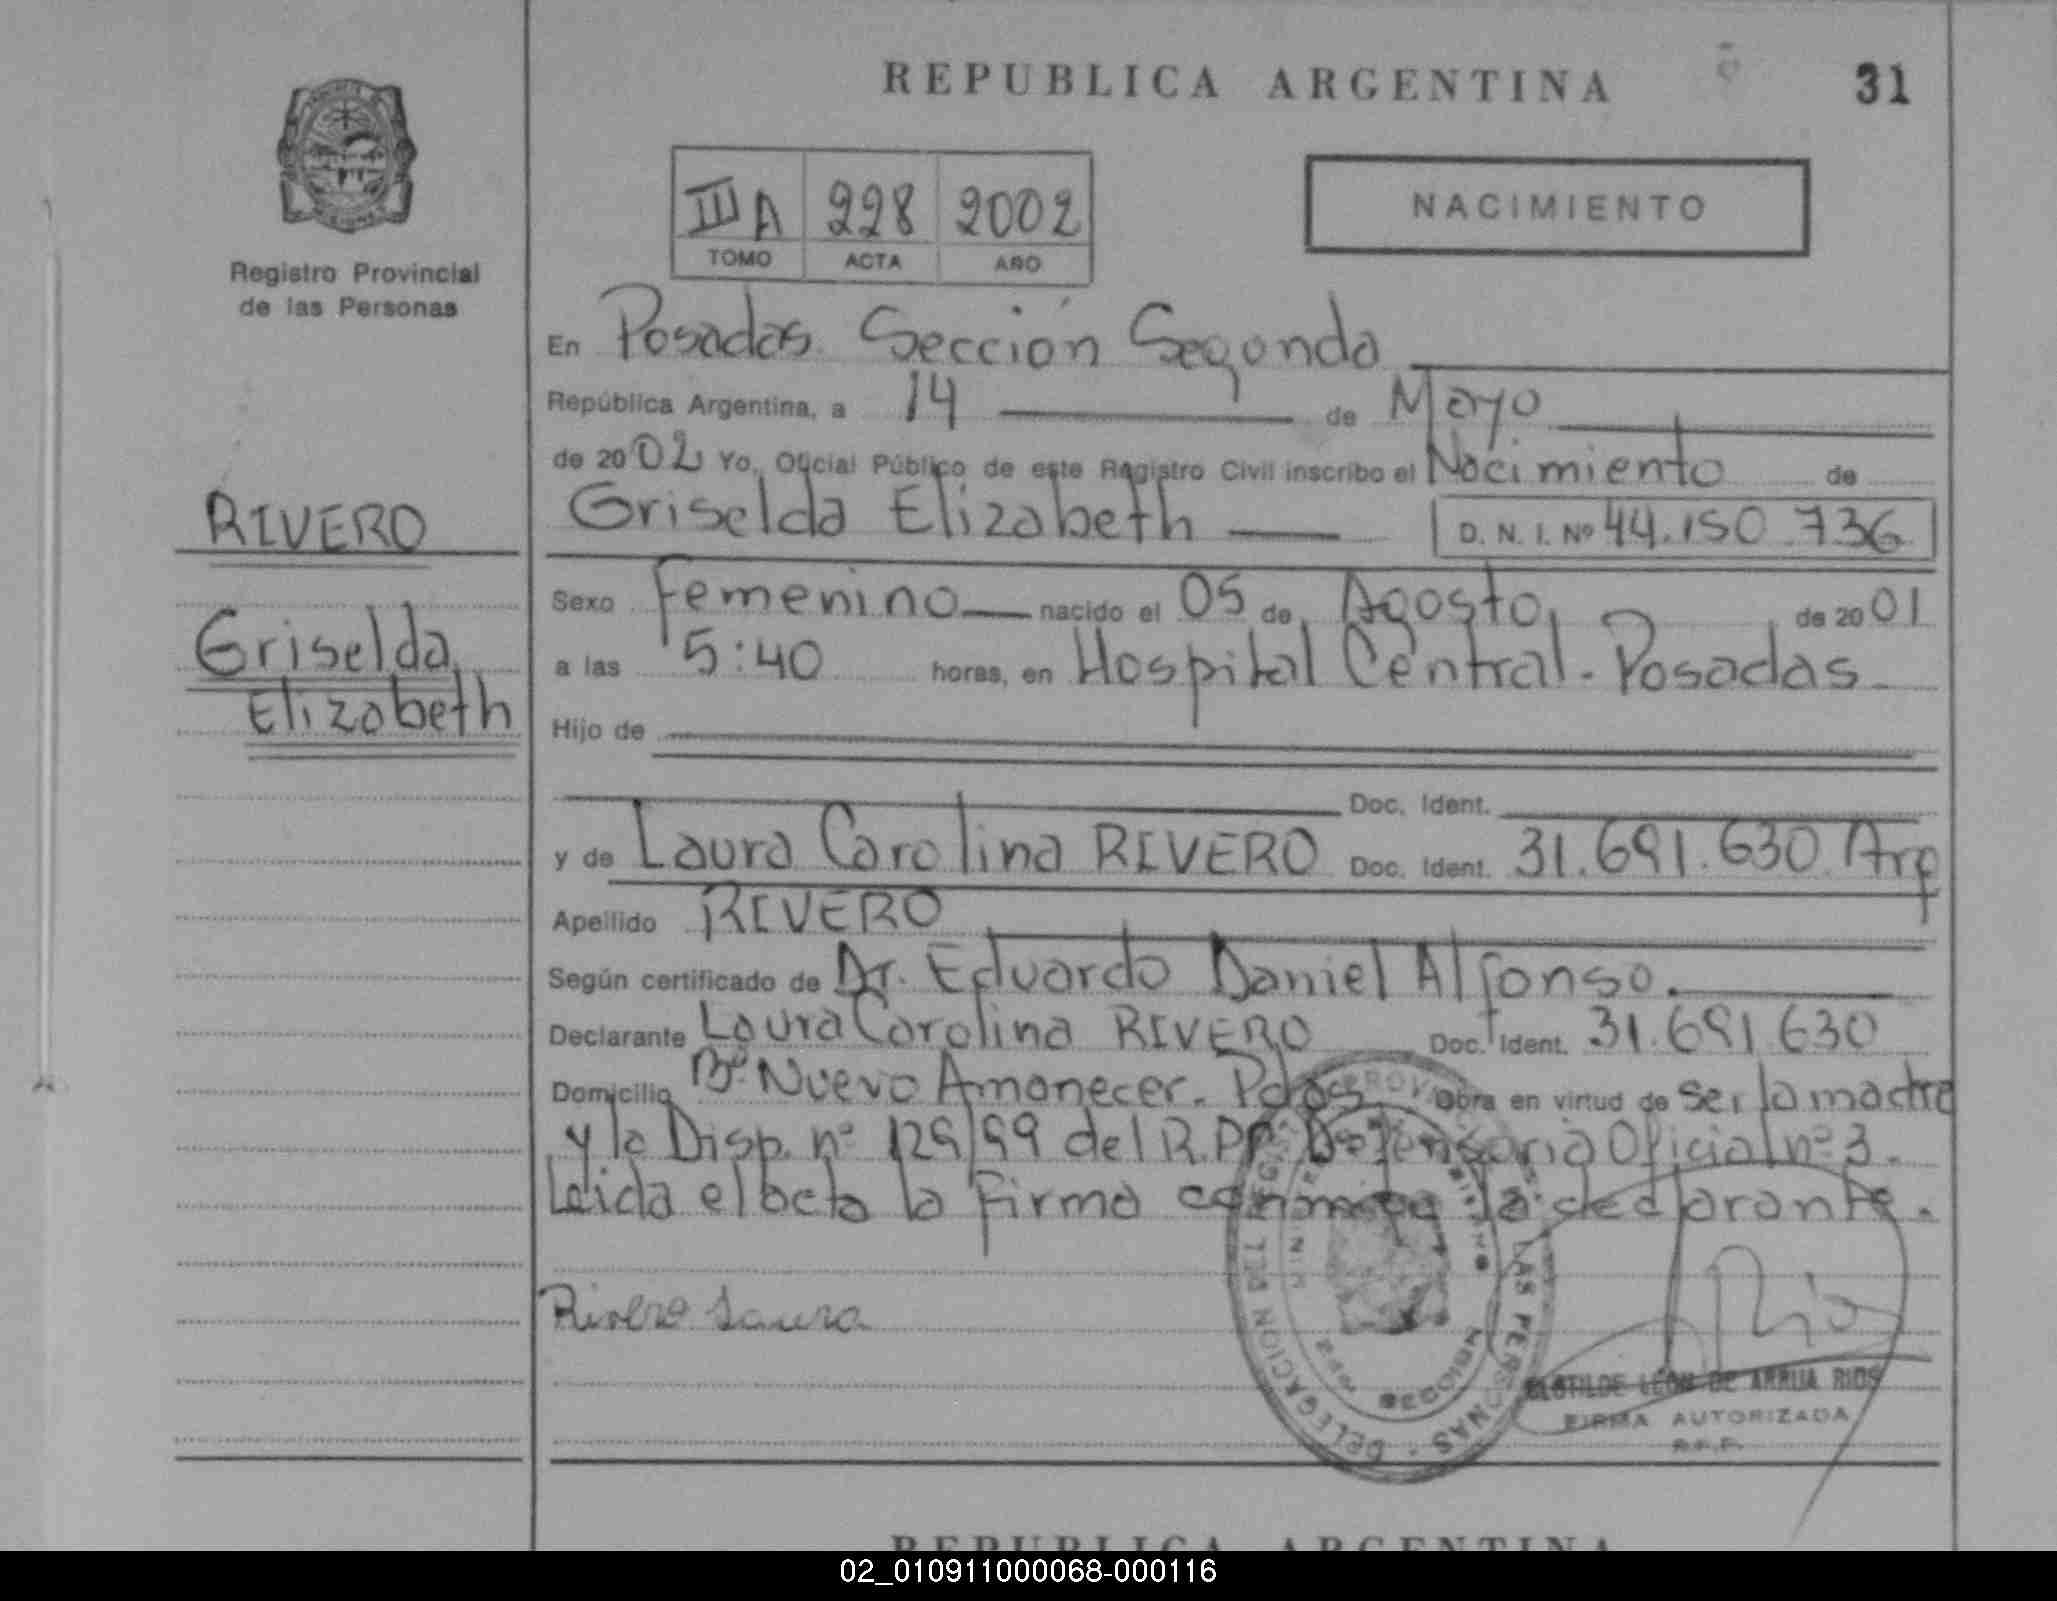 REPUBLICA ARGENTINA 31
Registro Provincial
de las Personas
III A 228 2002
TOMO ACTA AÑO
NACIMIENTO
En Posadas. Sección Segunda
República Argentina, a 14 de Mayo
de 2002 Yo, Oficial Público de este Registro Civil inscribo el Nacimiento de
Griselda Elizabeth D. N. I. Nº 44.150.736
RIVERO
Griselda
Elizabeth
Sexo Femenino nacido el 05 de Agosto de 2001
a las 5:40 horas, en Hospital Central. Posadas
Hijo de
Doc. Ident.
y de Laura Carolina RIVERO Doc. Ident. 31.691.630 Arg
Apellido RIVERO
Según certificado de Dr. Eduardo Daniel Alfonso.
Declarante Laura Carolina RIVERO Doc. Ident. 31.691.630
Domicilio Bº Nuevo Amanecer. Pdas Obra en virtud de ser la madre
y la Disp. nº 129/99 del R.PP. Defensoria Oficial nº 3.
Leida el acta la firma conmigo la declarante.
Rivero Laura
DELEGACION LAS PERSONAS
CLOTILDE LEON DE ARRUA RIOS
FIRMA AUTORIZADA
R.P.P.
REPUBLICA ARGENTINA
02_010911000068-000116